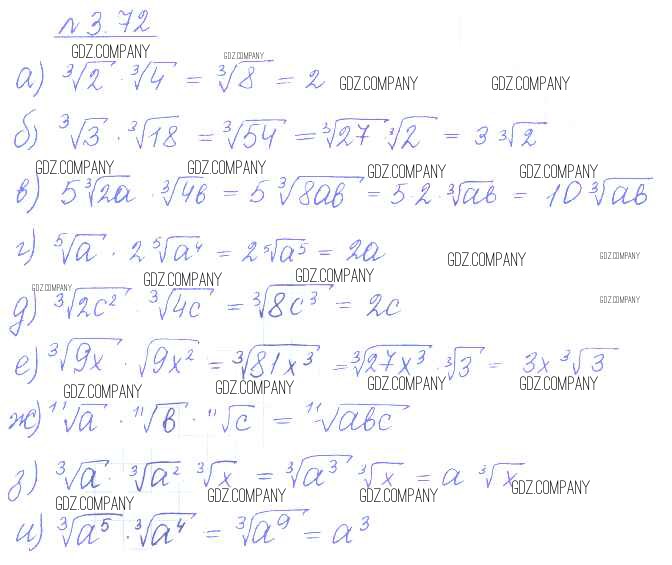 № 3.72
GDZ.COMPANY GDZ.COMPANY
а) ∛2 · ∛4 = ∛8 = 2 GDZ.COMPANY GDZ.COMPANY
б) ∛3 · ∛18 = ∛54 = ∛27 ∛2 = 3 ∛2
GDZ.COMPANY GDZ.COMPANY GDZ.COMPANY GDZ.COMPANY
в) 5 ∛2a · ∛4в = 5 ∛8aв = 5 2 · ∛aв = 10 ∛aв
г) ⁵√a · 2 ⁵√a⁴ = 2 ⁵√a⁵ = 2a GDZ.COMPANY GDZ.COMPANY
GDZ.COMPANY GDZ.COMPANY GDZ.COMPANY
д) ∛2c² · ∛4c = ∛8c³ = 2c GDZ.COMPANY
е) ∛9x · √9x² = ∛81x³ = ∛27x³ · ∛3 = 3x ∛3
GDZ.COMPANY GDZ.COMPANY GDZ.COMPANY GDZ.COMPANY
ж) ¹¹√a · ¹¹√в · ¹¹√c = ¹¹√aвc
з) ∛a · ∛a² ∛x = ∛a³ ∛x = a ∛x GDZ.COMPANY
GDZ.COMPANY GDZ.COMPANY GDZ.COMPANY
и) ∛a⁵ · ∛a⁴ = ∛a⁹ = a³